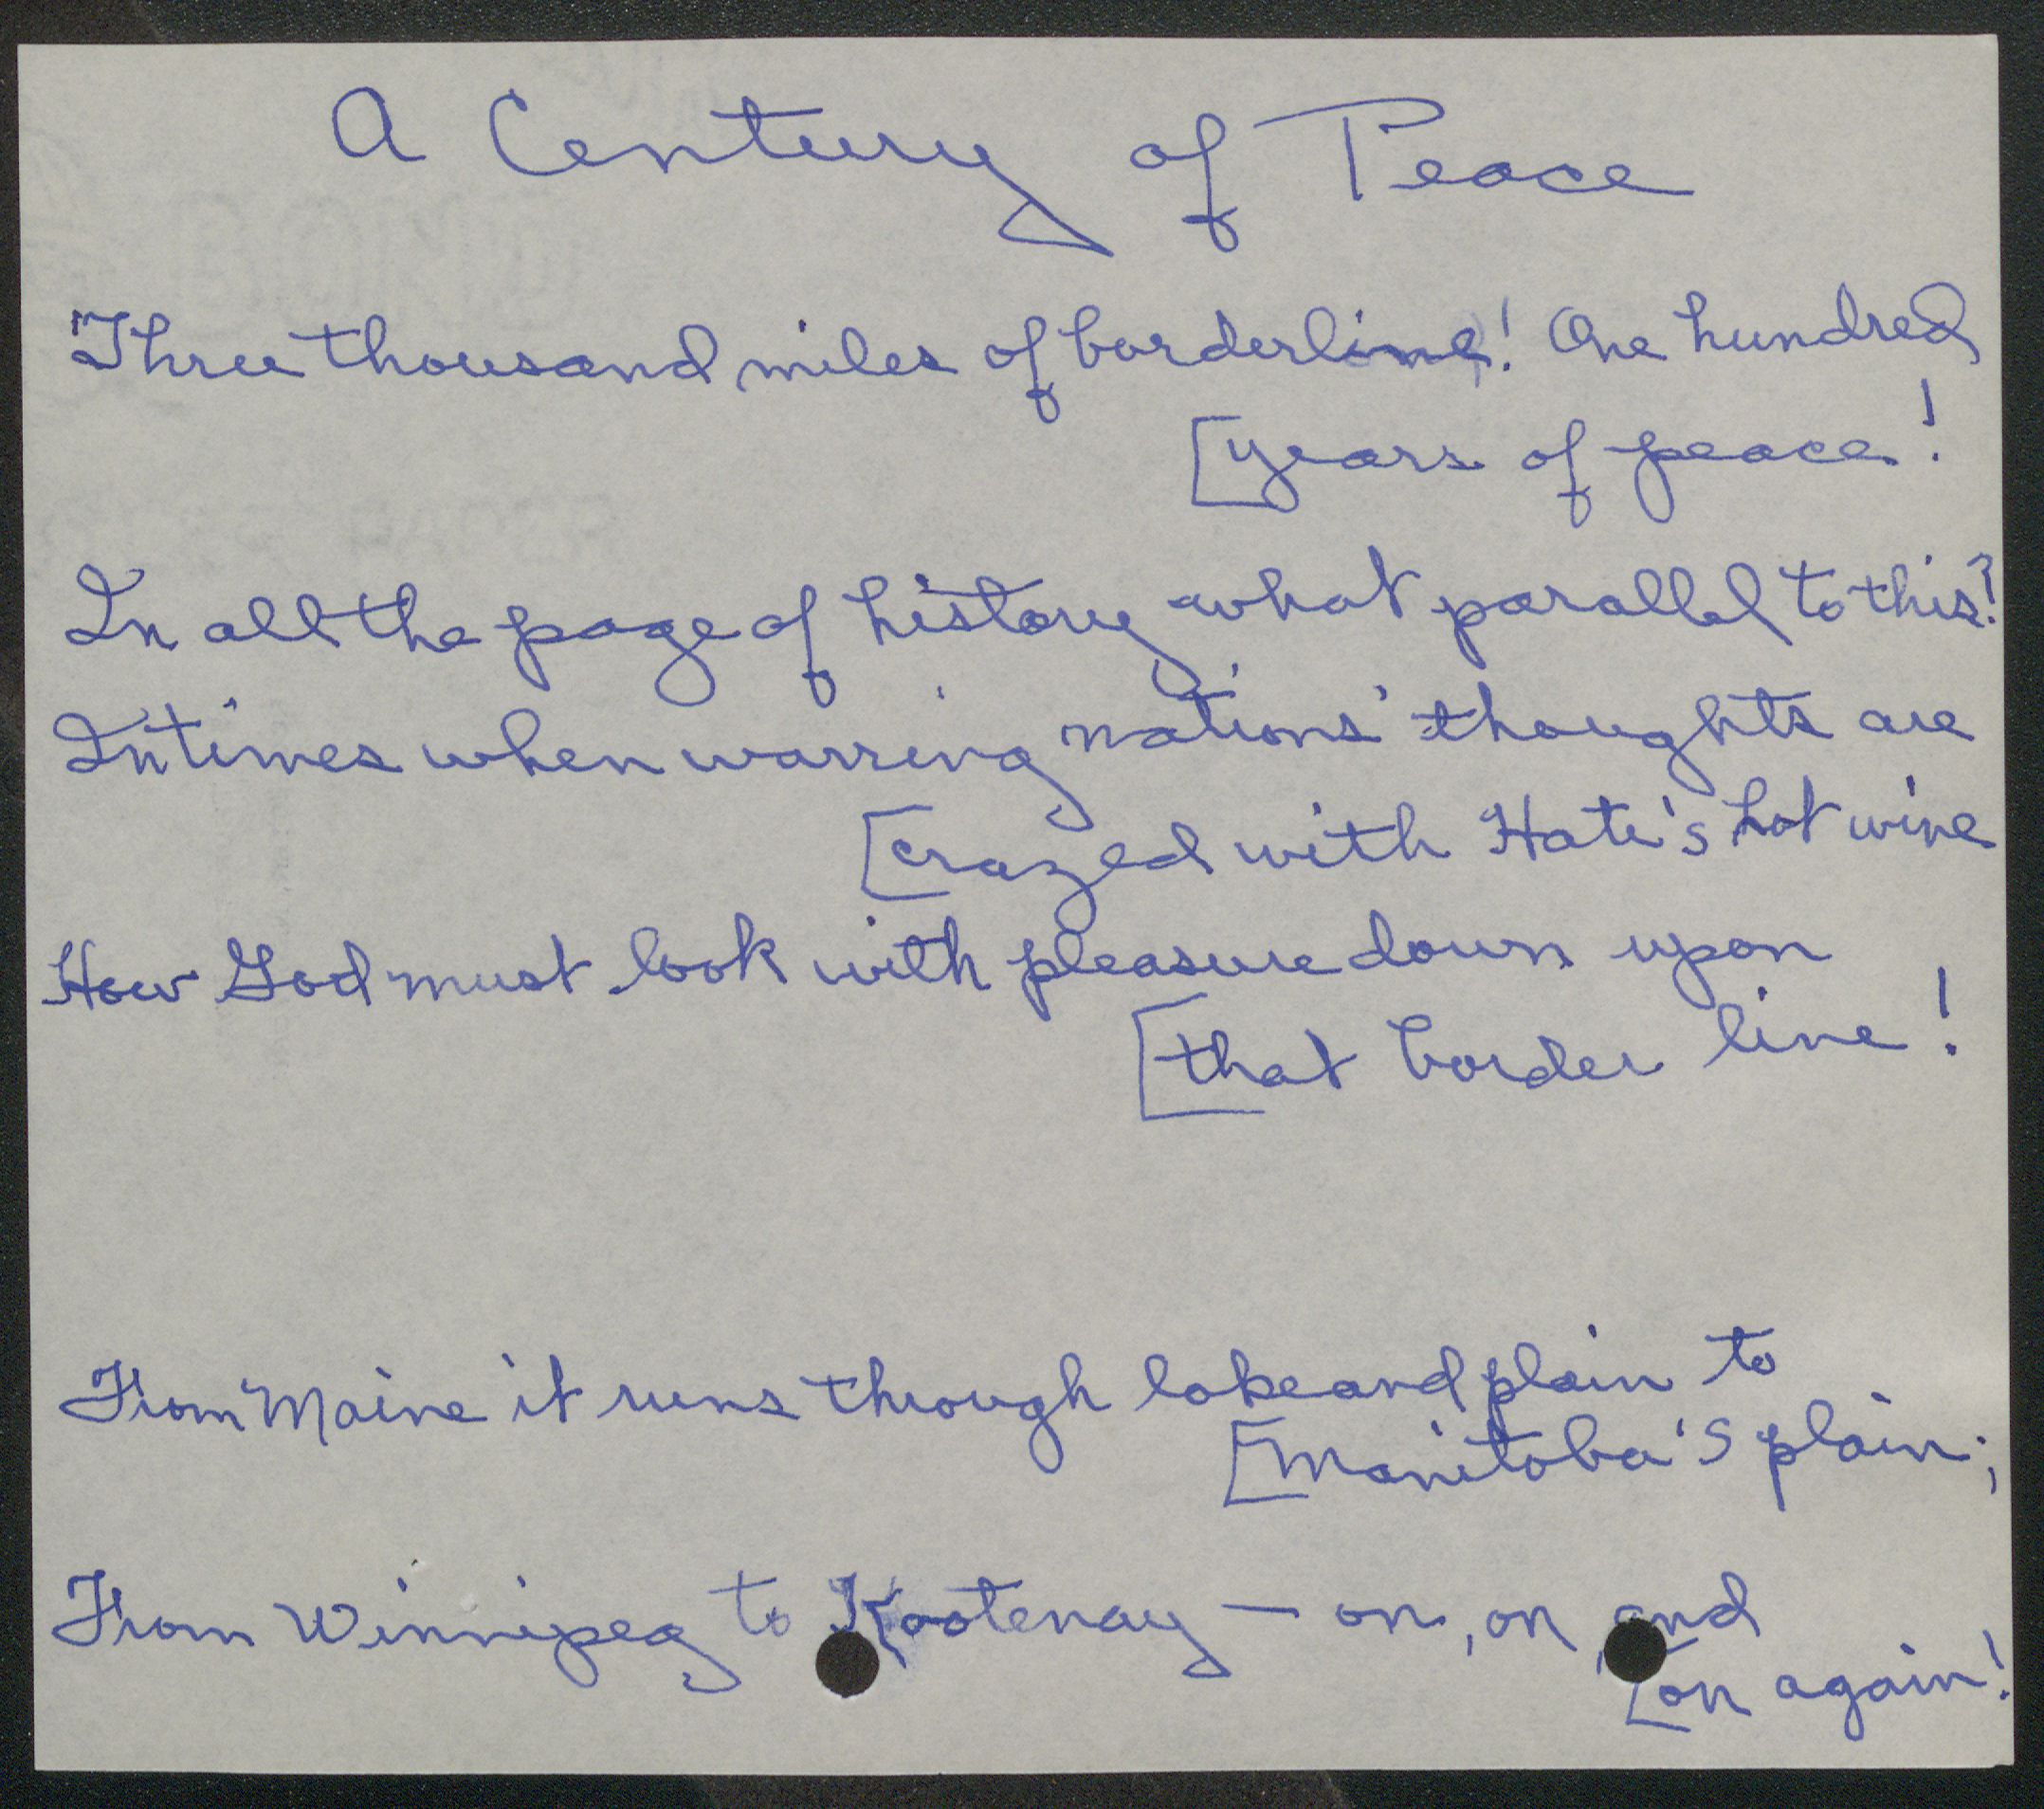 A Century of Peace
"Three thousand miles of borderline! One hundred
[years of peace!
In all the page of history what parallel to this?
In times when warring nations' thoughts are
[crazed with Hate's hot wine
How God must look with pleasure down upon
[that border line!
From Maine it runs through lake and plain to
[Manitoba's plain;
From Winnipeg to Kootenay — on, on, and
[on again!